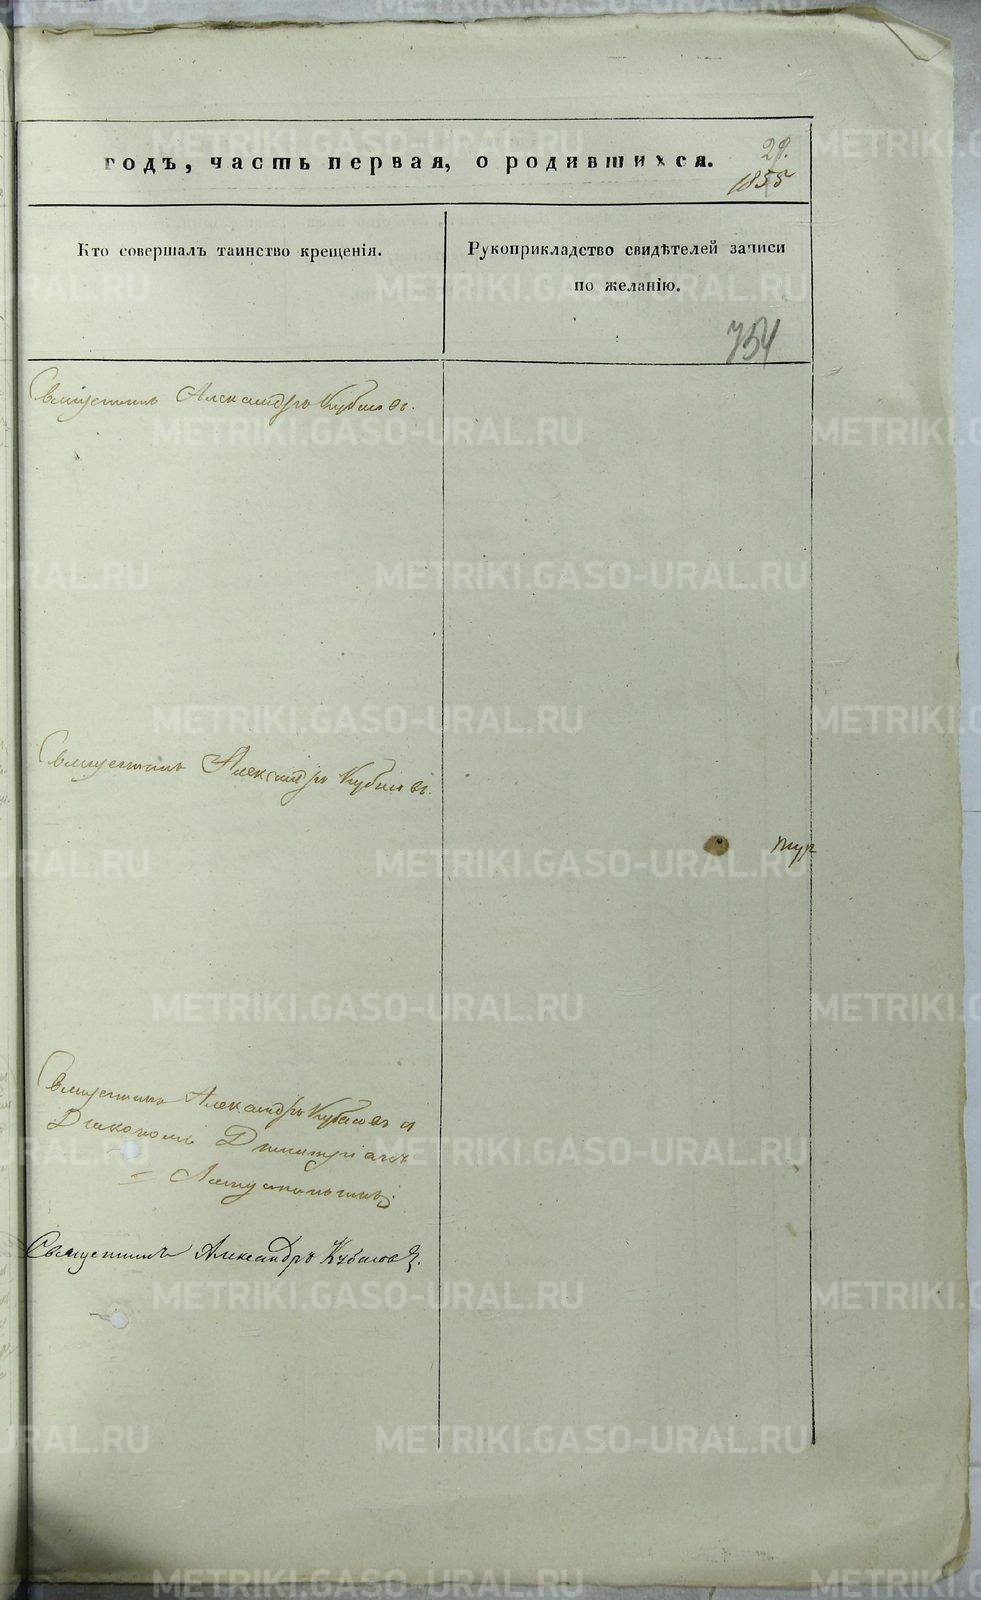 METRIKI.GASO-URAL.RU
годъ, часть первая, о родившихся.
29.
1855
Кто совершалъ таинство крещенія.
Рукоприкладство свидѣтелей записи
по желанію.
754
Священникъ Александръ Кубасовъ.
Священникъ Александръ Кубасовъ.
Священникъ Александръ Кубасовъ и
Діакономъ Димитріемъ
Священникъ Александръ Кубасовъ.